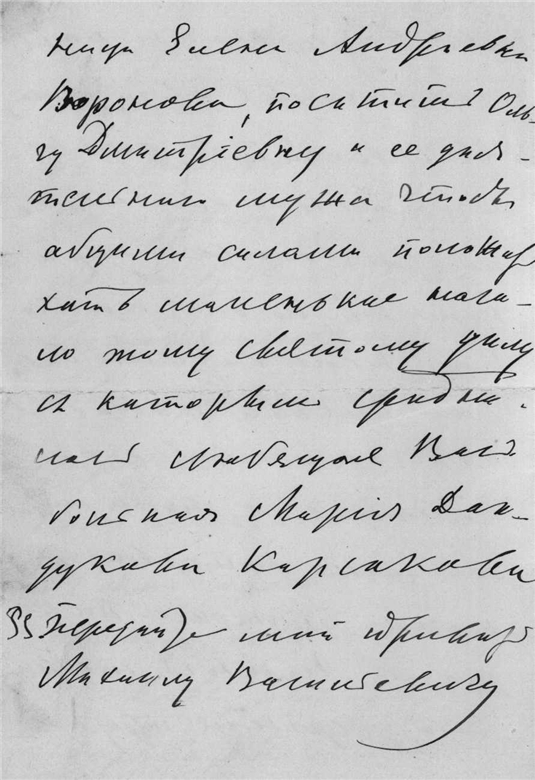 Елена Андреевна
Воронова, посетит Оль-
гу Дмитріевну и ее
мужа чтобъ
общими силами полож
хоть маленькие нача-
ло тому святому делу
съ каторымъ
любящая Васъ
больная Марія Дон-
дукова Карсакова
Передайте мой
Михаилу Васильевичу